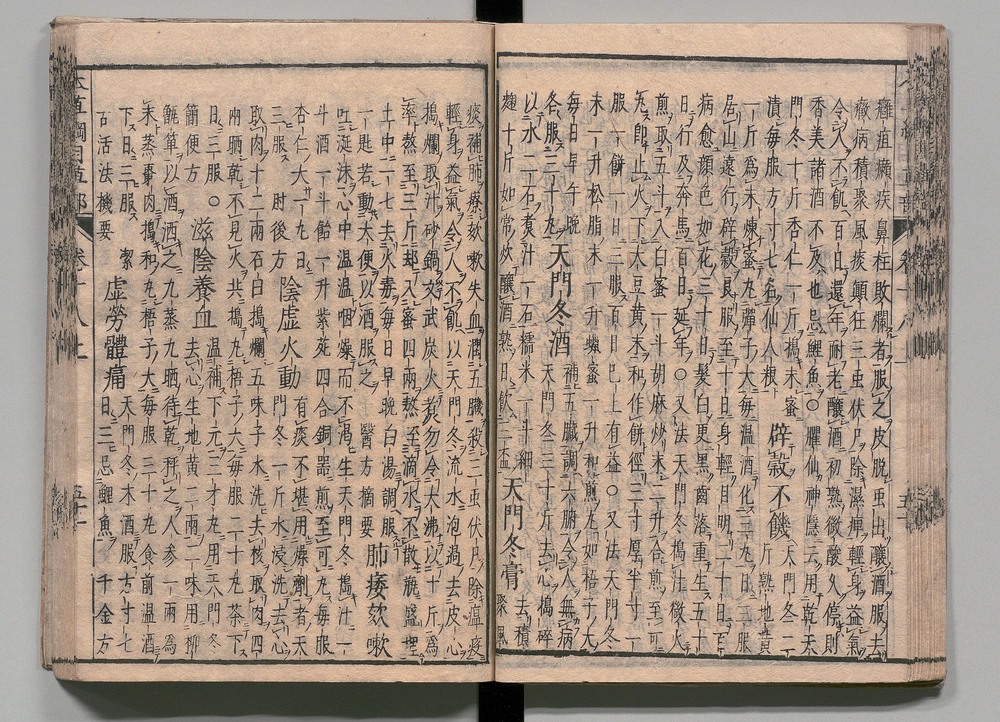 癰疽癩疾鼻柱敗爛者服之皮脫虫出釀酒服去
癥病積聚風痰顛狂三虫伏尸除濕痺輕身益氣
令人不飢百日還年耐老釀酒初熟微酸久停則
香美諸酒不及也忌鯉魚○臞仙神隱云用乾天
門冬十斤杏仁一斤搗末蜜
漬每服方寸七名仙人粮
辟穀不饑
天門冬二
斤熟地黃
一斤爲末煉蜜丸彈子大每温酒化三丸日三服
居山遠行辟穀良服至十日身輕目明二十日百
病愈顏色如花三十日髮白更黑齒落重生五十
日行及奔馬百日延年○又法天門冬搗汁微火
煎取五斗入白蜜一斗胡麻炒末二升合煎至可
丸即止火下大豆黃末和作餅徑三寸厚半寸一
服一餅一日三服百日已上有益○又法天門冬
末一升松脂末一升蠟蜜一升和煎丸如梧子大
每日早午晚
各服三十丸
天門冬酒
補五臟調六腑令人無病
天門冬三十斤去心搗碎
以水二石煮汁一石糯米一斗細
麹十斤如常炊釀酒熟日飲三盃
天門冬膏
去積
聚風
痰補肺療欬嗽失血潤五臟殺三虫伏尸除瘟疫
輕身益氣令人不飢以天門冬流水泡過去皮心
搗爛取汁砂鍋文武炭火煮勿令大沸以十斤爲
率熬至三斤却入蜜四兩熬至滴水不散瓶盛埋
土中一七去火毒每日早晚白湯調服
一匙若動大便以酒服之
醫方摘要
肺痿欬嗽
吐涎沫心中温温咽燥而不渴生天門冬搗汁一
斗酒一斗飴一升紫菀四合銅器煎至可丸每服
杏仁大一丸日
三服
肘後方
陰虛火動
有痰不堪用燥劑者天
門冬一斤水浸洗去心
取肉十二兩石臼搗爛五味子水洗去核取肉四
兩晒乾不見火共搗丸梧子大每服二十丸茶下
日三服
簡便方
滋陰養血
温補下元三才丸用天門冬
去心生地黃二兩二味用柳
甑箄以酒洒之九蒸九晒待乾秤之人参一兩爲
末蒸棗肉搗和丸梧子大每服三十丸食前温酒
下日三服
潔
古活法機要
虛勞體痛
天門冬末酒服方寸七
日三忌鯉魚
千金方